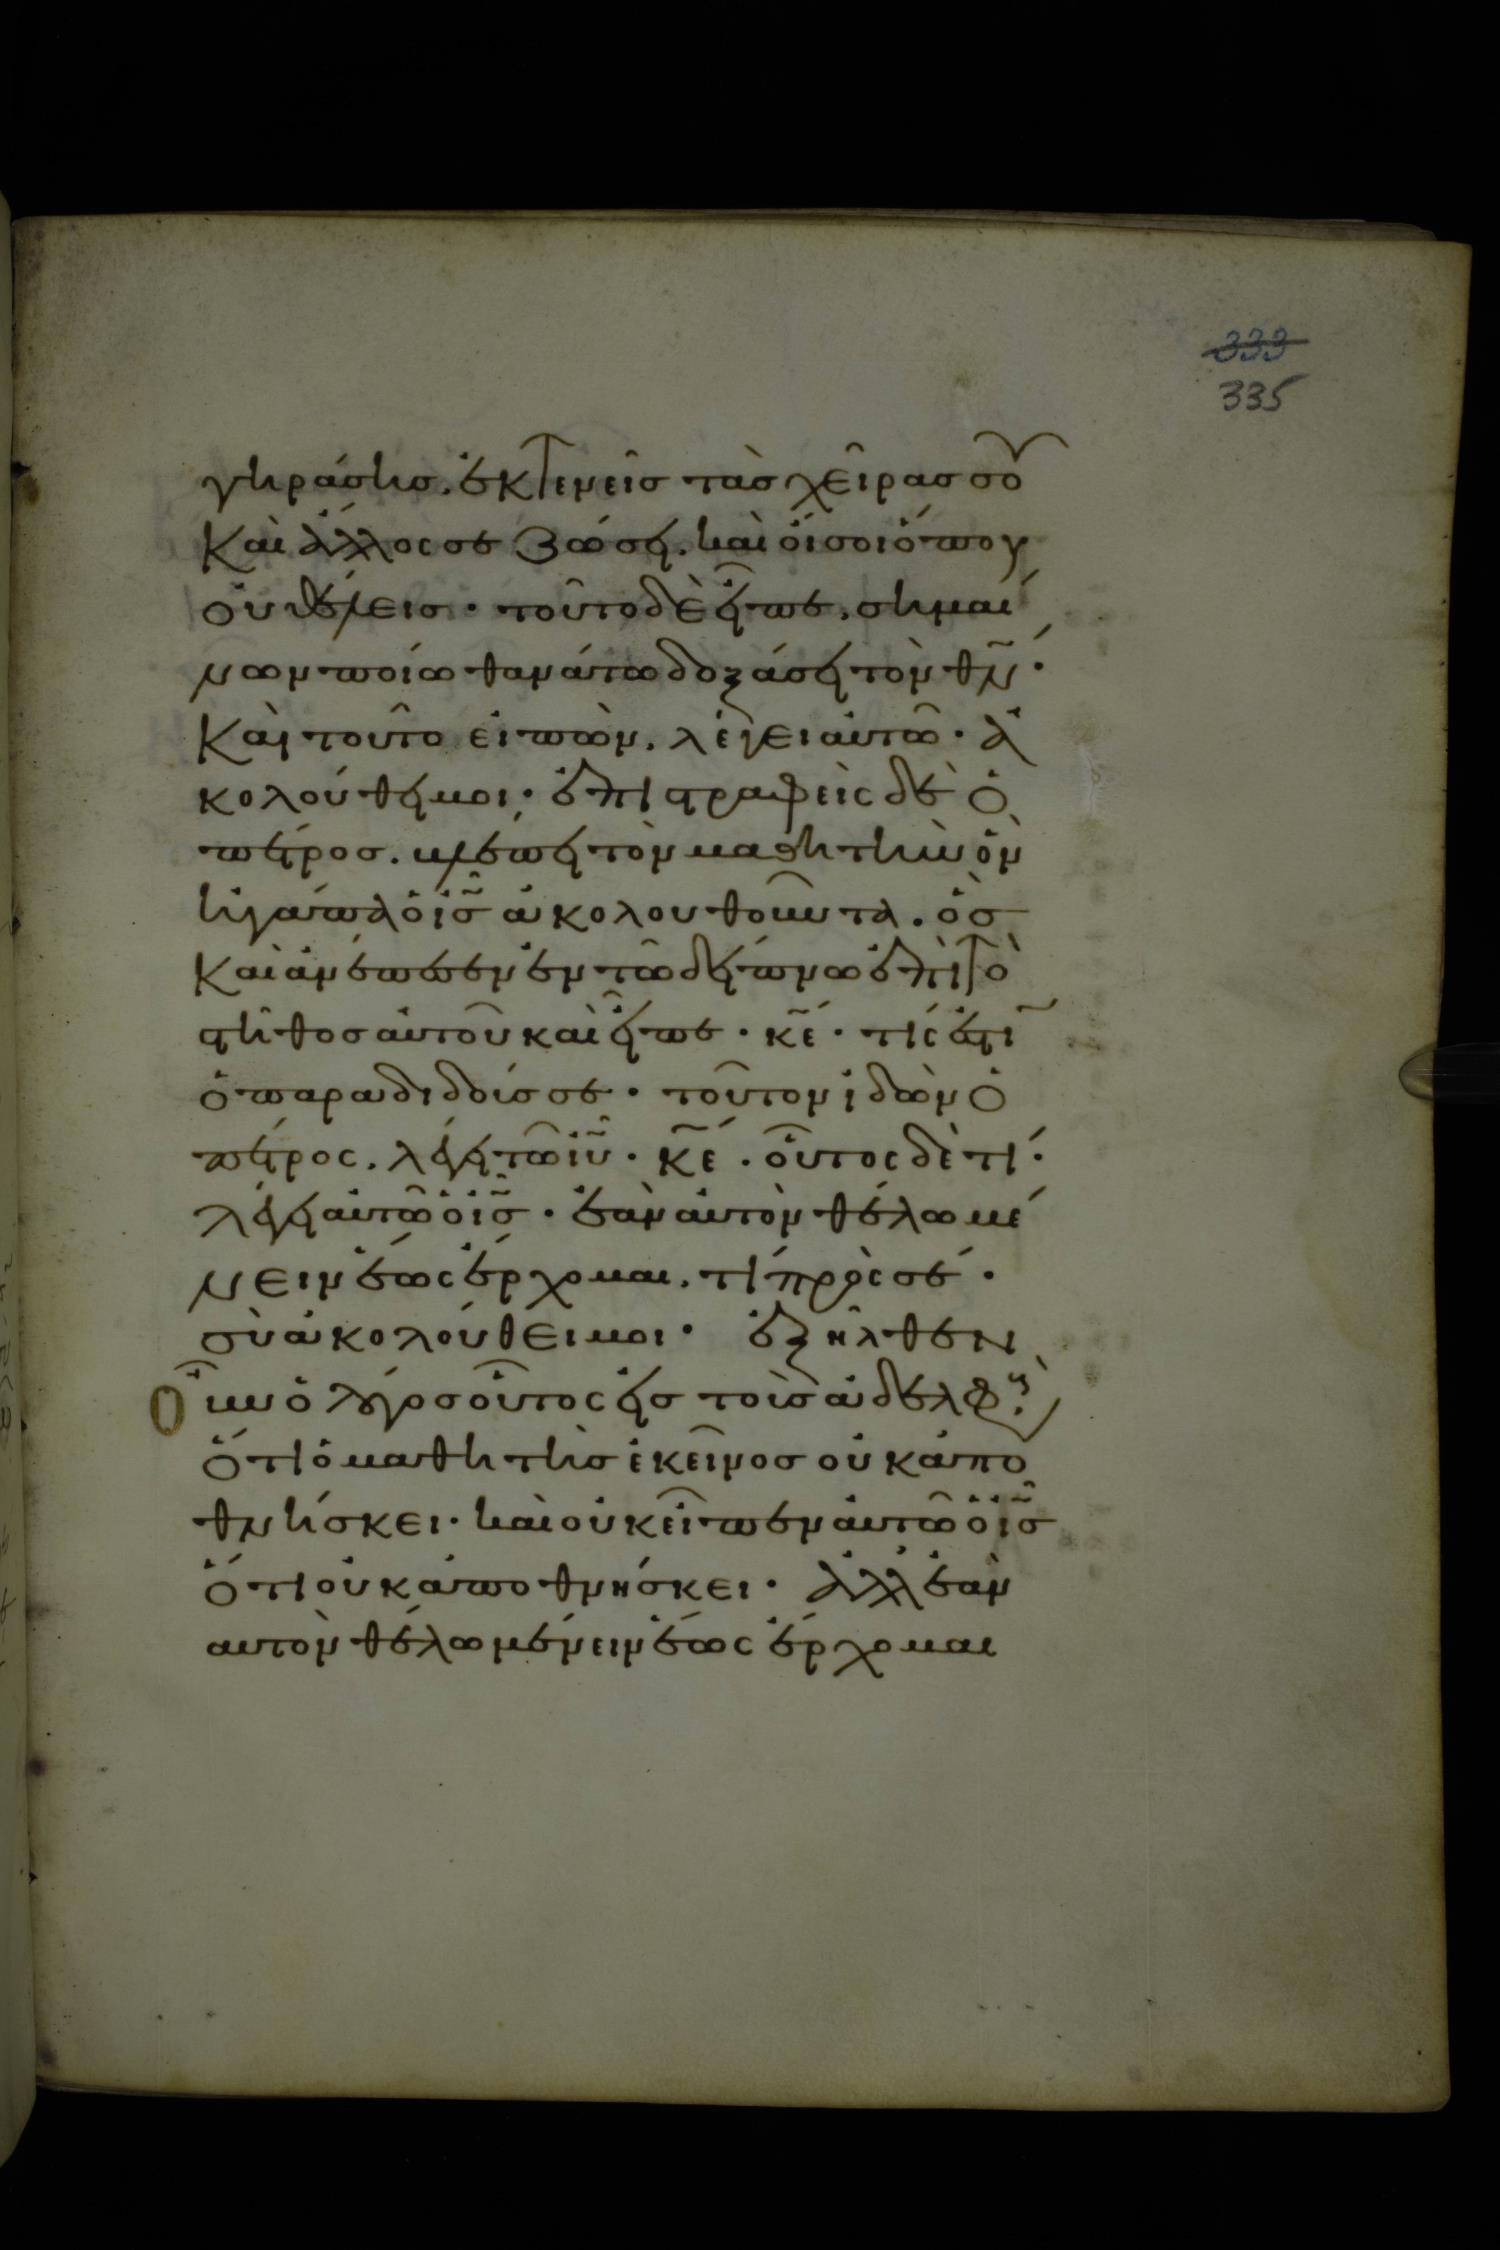 333
335
γηράσης. ἐκτενεῖς τὰς χεῖρας σου
Καὶ ἄλλος σε ζώσει. καὶ οἴσοι ὅπου
οὐ θέλεις· τοῦτο δὲ εἶπε. σημαί
νων ποίω θανάτω δοξάσει τὸν θν̄·
Καὶ τοῦτο εἰπὼν. λέγει αὐτῶ· ἀ
κολούθει μοι· ἐπιστραφεὶς δὲ ὁ
πέτρος. βλέπει τὸν μαθητὴν ὃν
ἠγάπα ὁ ις̄ ἀκολουθοῦντα. ὃς
Καὶ ἀνέπεσεν ἐν τῶ δείπνω ἐπὶ τὸ
στῆθος αὐτοῦ καὶ εἶπε· κε̄· τίς ἐστῖ
ὁ παραδιδούς σε· τοῦτον ἰδὼν ὁ
πέτρος. λέγει τῶ ιῡ· κε̄. οὗτος δὲ τί·
λέγει αὐτῶ ὁ ις̄· ἐὰν αὐτὸν θέλω μέ
νειν ἕως ἔρχομαι. τί πρὸς σέ·
σὺ ἀκολούθει μοι· ἐξῆλθεν
Οὖν ὁ λόγος οὗτος εἰς τοὺς ἀδελφοὺς
ὅτι ὁ μαθητὴς ἐκεῖνος οὐκ ἀπο
θνήσκει· καὶ οὐκ εἶπεν αὐτῶ ὁ ις̄
ὅτι οὐκ ἀποθνήσκει· ἀλλ' ἐὰν
αὐτὸν θέλω μένειν ἕως ἔρχομαι